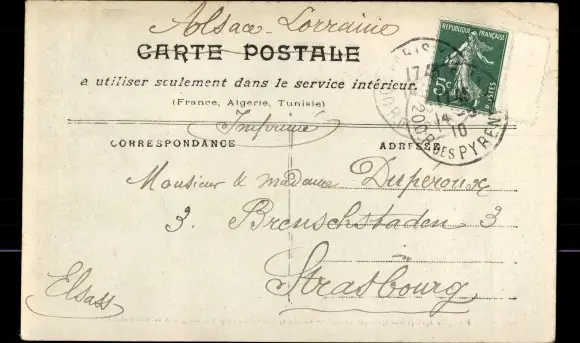 Alsace-Lorraine
CARTE POSTALE
a utiliser seulement dans le service intérieur.
(France, Algerie, Tunisie)
Imprimé
CORRESPONDANCE
ADRESSE
REPUBLIQUE FRANÇAISE
5c
POSTES
PARIS
17
14
10
DES PYREN
Monsieur & Madame Duperoux
3. Breuschstaden 3
Strasbourg
Elsass